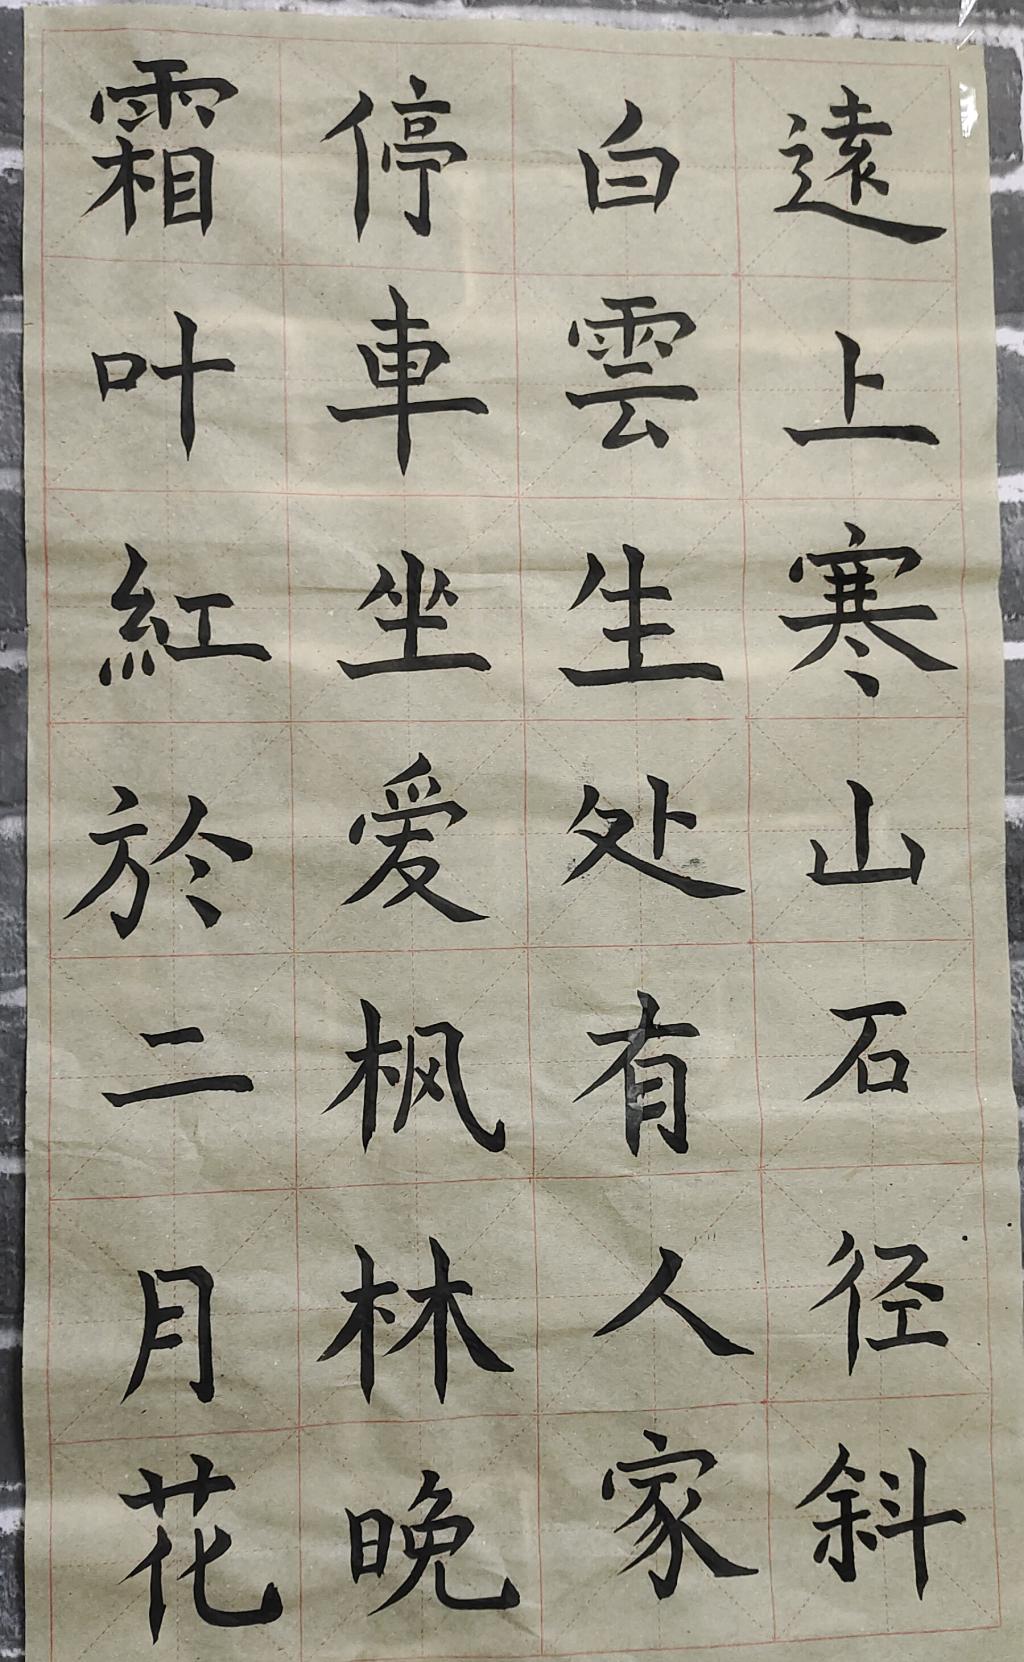 遠上寒山石径斜
白雲生处有人家
停車坐爱枫林晚
霜叶紅於二月花